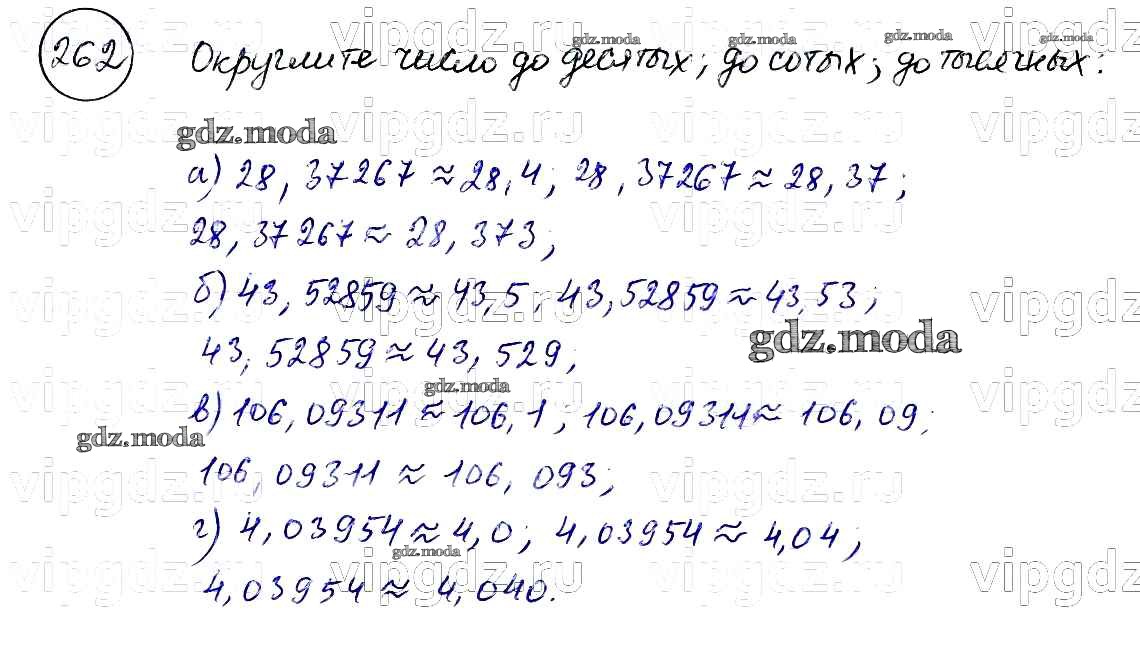 262 Округлите число до десятых; до сотых; до тысячных:
а) 28,37267 ≈ 28,4; 28,37267 ≈ 28,37;
28,37267 ≈ 28,373;
б) 43,52859 ≈ 43,5; 43,52859 ≈ 43,53;
43,52859 ≈ 43,529;
в) 106,09311 ≈ 106,1; 106,09311 ≈ 106,09;
106,09311 ≈ 106,093;
г) 4,03954 ≈ 4,0; 4,03954 ≈ 4,04;
4,03954 ≈ 4,040.
gdz.moda
vipgdz.ru